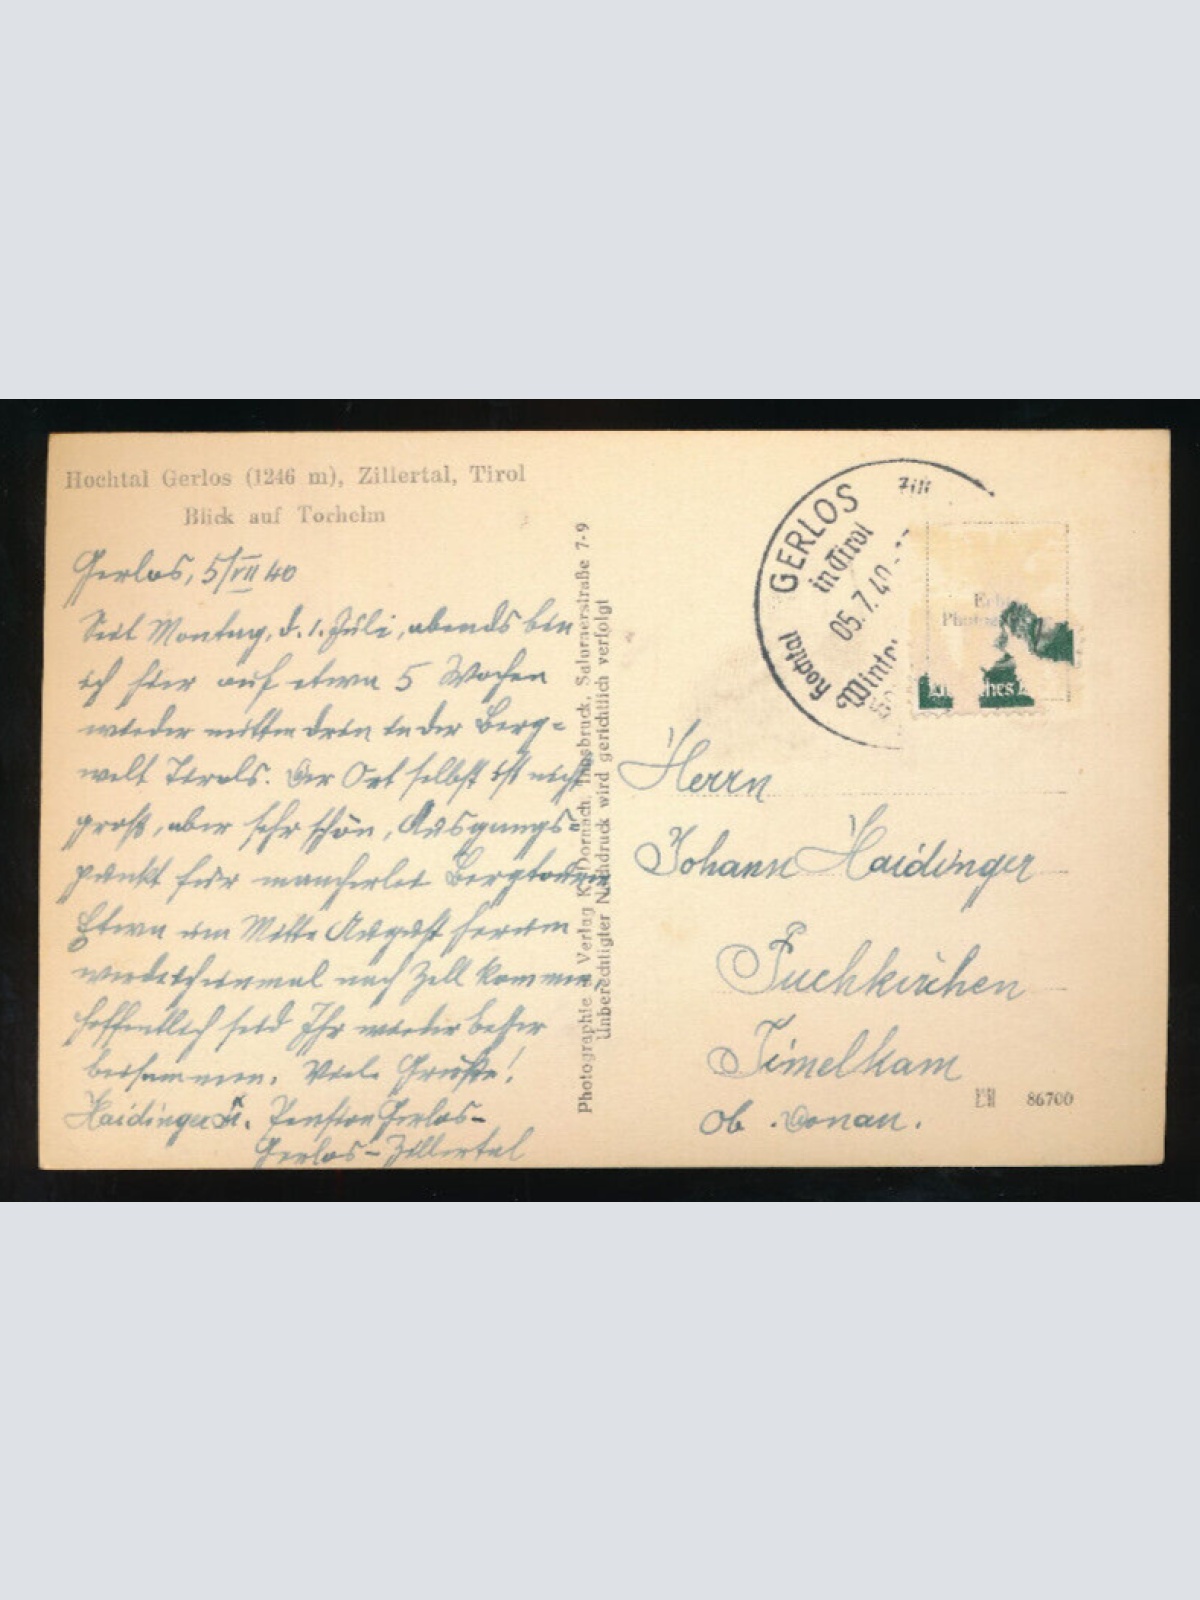 Hochtal Gerlos (1246 m), Zillertal, Tirol
Blick auf Torhelm
Gerlos, 5/VII 40
Seit Montag, d. 1. Juli, abends bin
ich hier auf etwa 5 Wochen
wieder mitten drin in der Berg-
welt Tirols. Der Ort selbst ist nicht
groß, aber sehr schön, Ausgangs-
punkt für mancherlei Bergtouren
Etwa um Mitte August herum
werde ich einmal nach Zell kommen
hoffentlich seid Ihr wieder besser
beisammen. Viele Grüße!
Haidinger Pension Gerlos-
Gerlos-Zillertal
Photographie u. Verlag K. Dornach, Innsbruck, Salurnerstraße 7-9
Unberechtigter Nachdruck wird gerichtlich verfolgt
GERLOS
in Tirol
05.7.40
Hochtal
Zill
Herrn
Johann Haidinger
Puchkirchen
Timelkam
ob. Donau.
86700